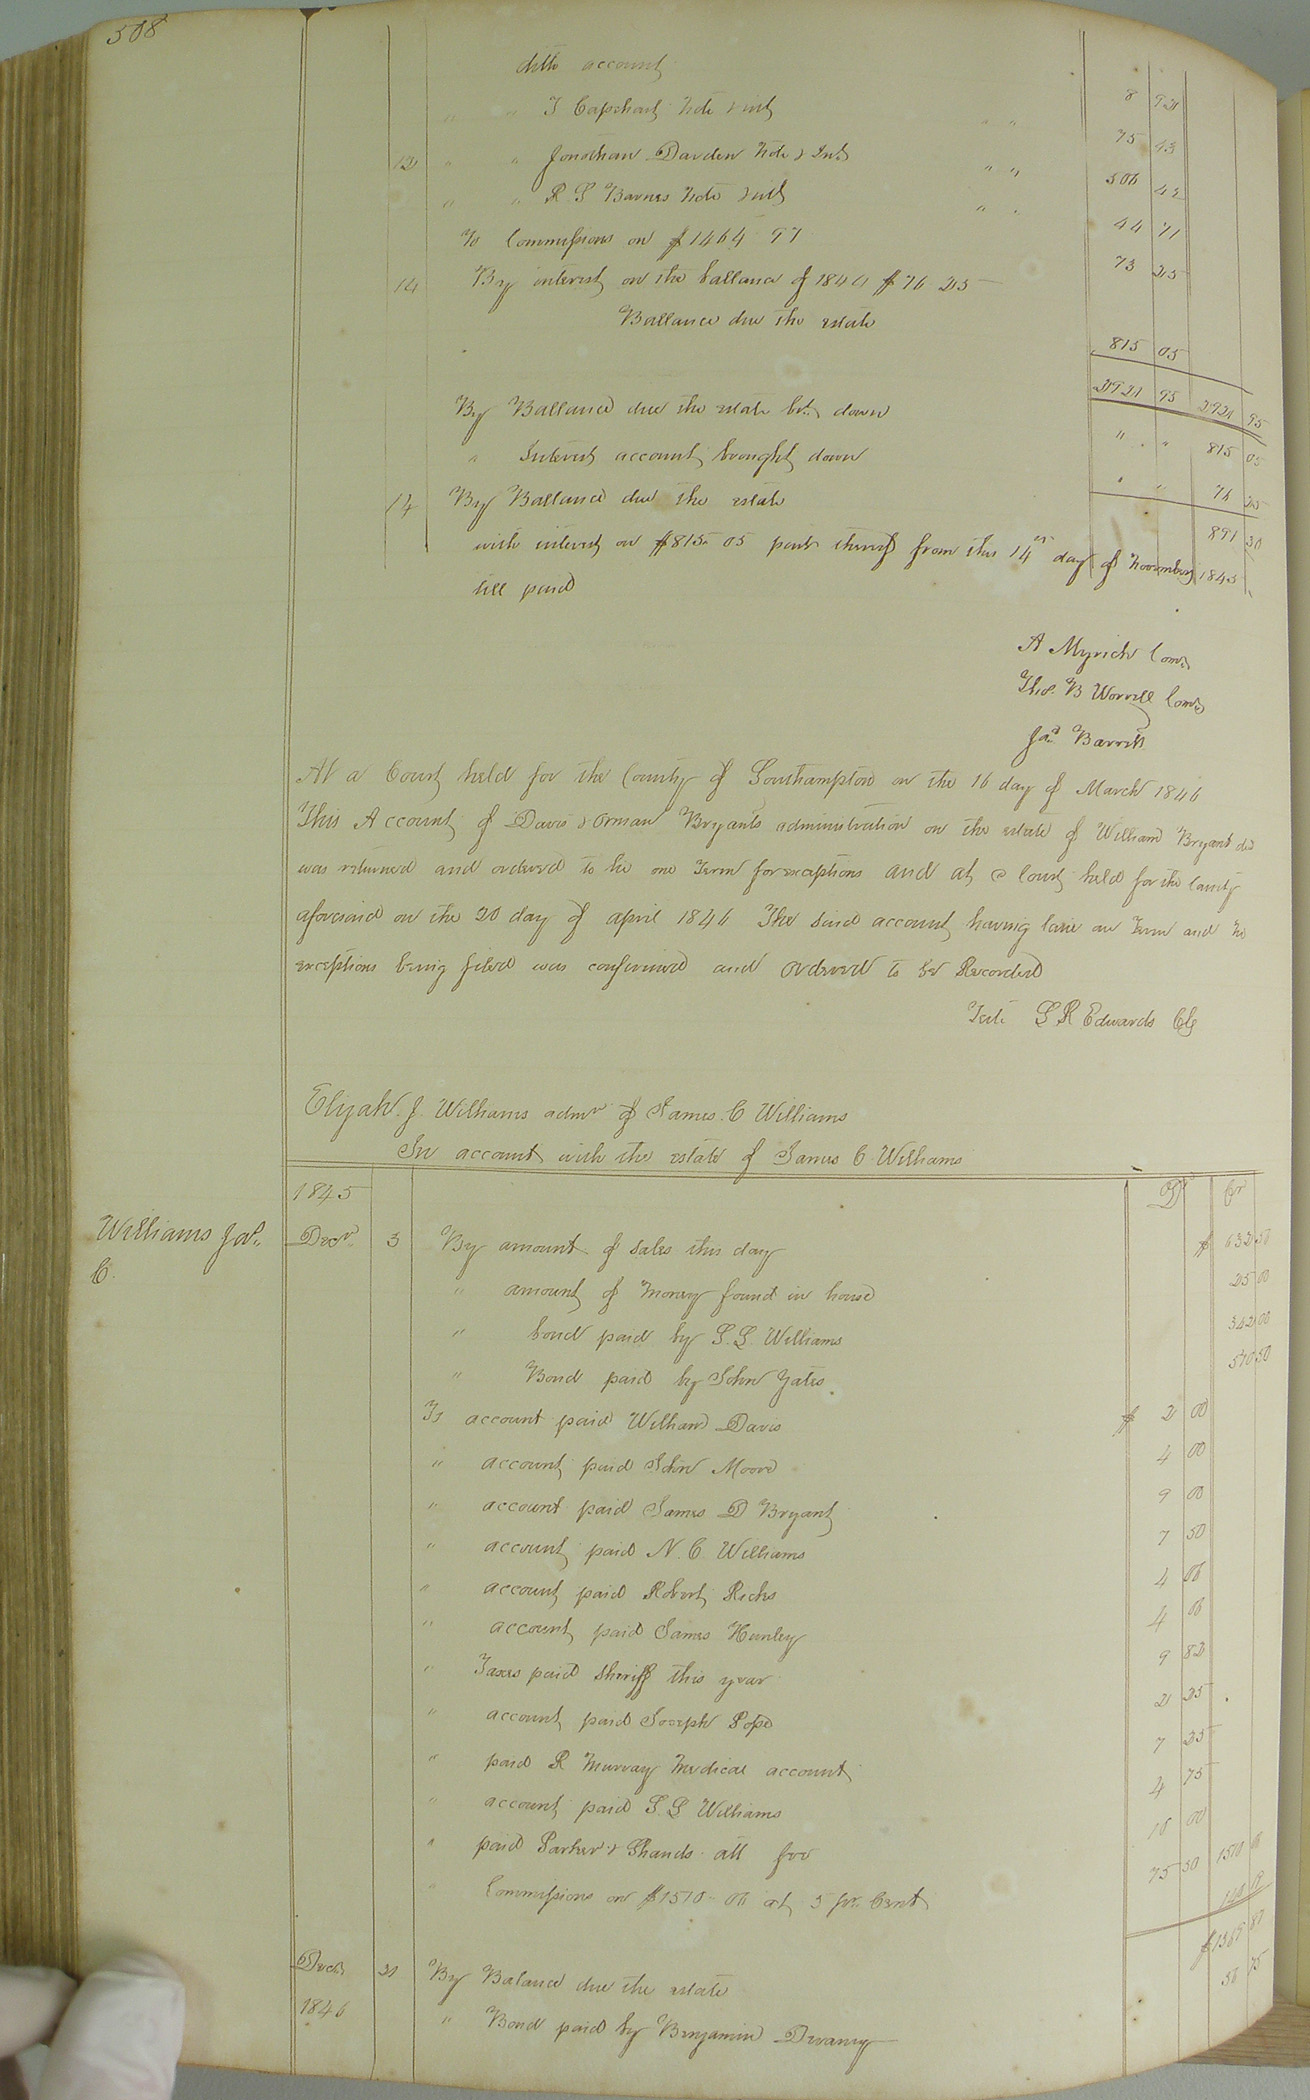 508
ditto account
" " J Capehart Note & int " " 8
12 " " Jonathan Darden Note & Int " " 75 43
" " R. S Barnes Note & int " . 506 42
To Commissions on $1464 97 44 71
14 By interest on the ballance of 1844 $76 25 73 25
Ballance due the estate
815 05
2921 95 2921 95
By Ballance due the estate bt. down " " 815 05
" Interest account brought down " " 76 25
14 By Ballance due the estate 891 30
with interest on $815 05 part thereof from this 14th day of November 1845
till paid
A Myrick Comr
Thos. B Worrell Comr
Jas Barrett
At a Court held for the County of Southampton on the 16 day of March 1846
This Account of Davis & Orman Bryants administration on the estate of William Bryant decd
was returned and ordered to lie one Term for exceptions and at a Court held for the County
aforesaid on the 20 day of April 1846 The said account having lain one Term and no
exceptions being filed was confirmed and ordered to be Recorded
Teste L R Edwards Clk
Elijah J. Williams admr of James. C Williams
In account with the estate of James C. Williams
1845 Dr Cr
Williams Jas. C.
Decr. 3 By amount of sales this day $ 632 50
" amount of Money found in house 25 00
" bond paid by S. G. Williams 342 00
" Bond paid by John Yates 510 50
To account paid William Davis $ 2 00
" account paid John Moore 4 00
" account paid James D Bryant 9 00
" account paid N. C. Williams 7 50
" account paid Robert Ricks 4 06
" account paid James Hunley 4 06
" Taxes paid Sheriff this year 9 82
" account paid Joseph Pope 2 25
" paid R Murray Medical account 7 25
" account paid S. G Williams 4 75
" paid Parker & Shands att fee 10 00
" Commissions on $1510 06 at 5 pr. Cent 75 50 1510
Decr 31 By Balance due the estate $1369 87
1846 " Bond paid by Benjamin Devany 56 75